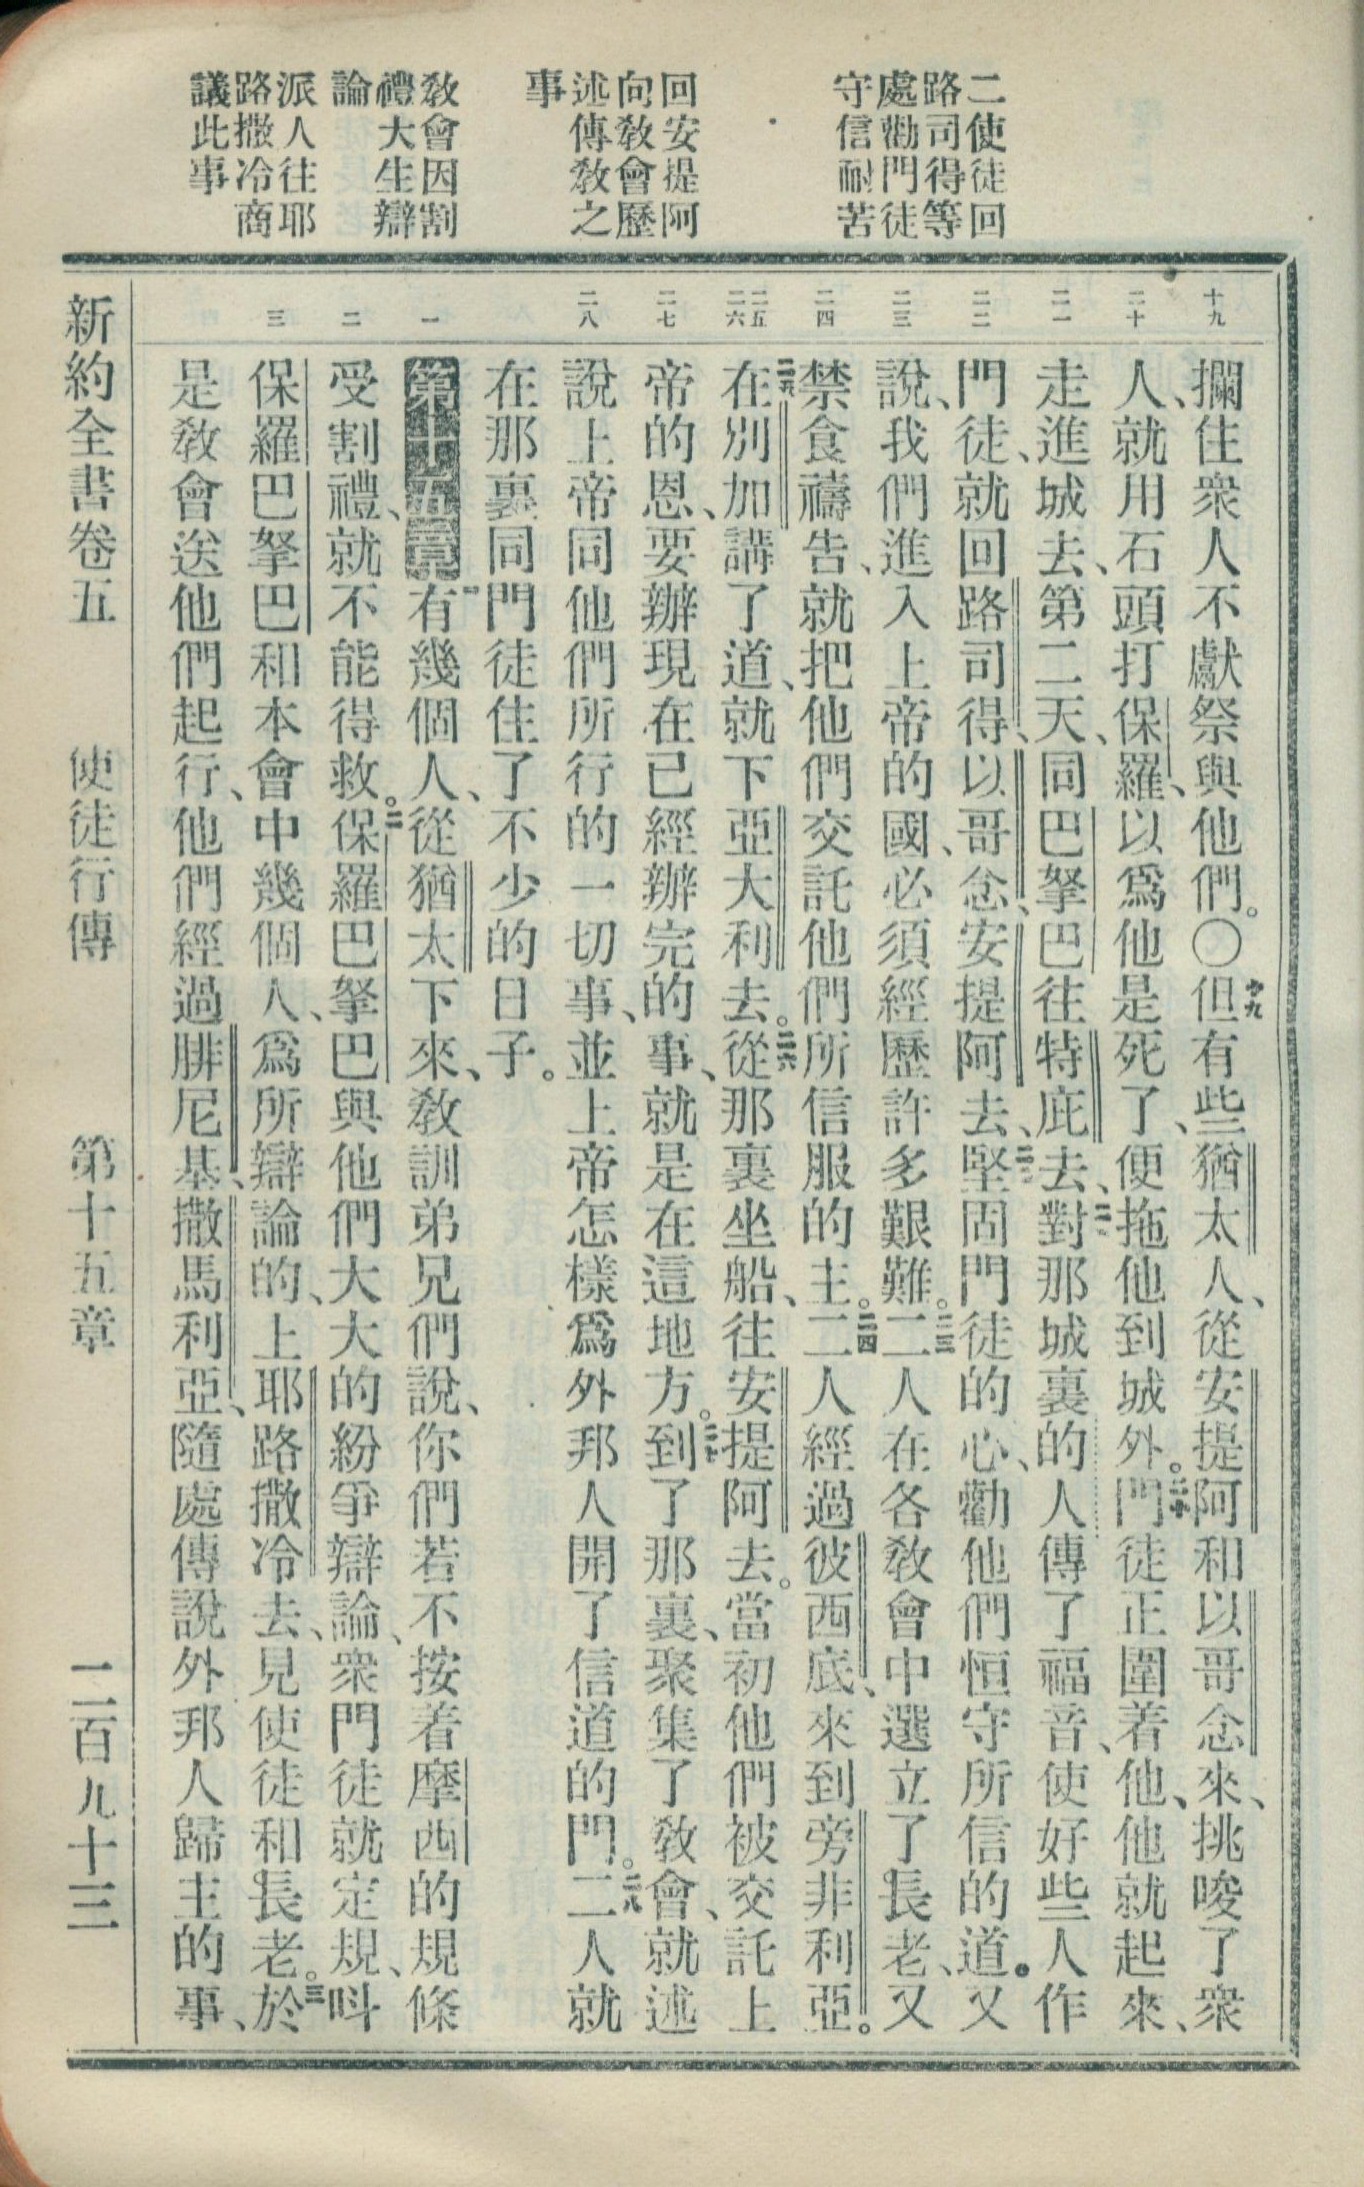 二使徒回
路司得等
處勸門徒
守信耐苦
回安提阿
向敎會歷
述傳敎之
事
敎會因割
禮大生辯
論
派人往耶
路撒冷商
議此事
十九
二十
二一
二二
二三
二四
二五
二六
二七
二八
一
二
三
攔住衆人不獻祭與他們。〇十九但有些猶太人、從安提阿和以哥念來、挑唆了衆
人、就用石頭打保羅、以爲他是死了、便拖他到城外。二十門徒正圍着他、他就起來、
走進城去、第二天、同巴拏巴往特庇去、二一對那城裏的人傳了福音、使好些人作
門徒、就回路司得、以哥念、安提阿去、二二堅固門徒的心、勸他們恒守所信的道。又
說、我們進入上帝的國、必須經歷許多艱難。二三二人在各敎會中選立了長老、又
禁食禱告、就把他們交託他們所信服的主。二四二人經過彼西底、來到旁非利亞。
二五在別加講了道、就下亞大利去。二六從那裏坐船、往安提阿去。當初他們被交託上
帝的恩、要辦現在已經辦完的事、就是在這地方。二七到了那裏、聚集了敎會、就述
說上帝同他們所行的一切事、並上帝怎樣爲外邦人開了信道的門。二八二人就
在那裏同門徒住了不少的日子。
第十五章 一有幾個人、從猶太下來、敎訓弟兄們說、你們若不按着摩西的規條
受割禮、就不能得救。二保羅巴拏巴與他們大大的紛爭辯論、衆門徒就定規、呌
保羅巴拏巴和本會中幾個人、爲所辯論的、上耶路撒冷去、見使徒和長老。三於
是敎會送他們起行、他們經過腓尼基、撒馬利亞、隨處傳說外邦人歸主的事、
新約全書卷五 使徒行傳 第十五章 二百九十三